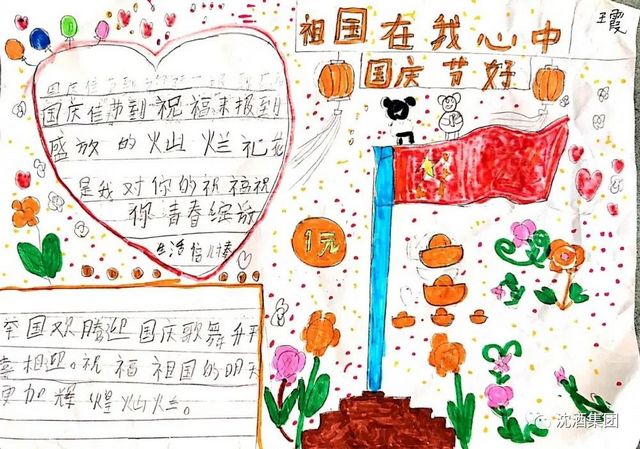 祖国在我心中
王霞
国庆节好
国庆佳节到祝福来报到
盛放的灿烂礼花
是我对你的祝福祝
你青春缤纷
生活倍儿棒
1元
举国欢腾迎国庆歌舞升平
喜相迎。祝福祖国的明天
更加辉煌灿烂。
沈酒集团